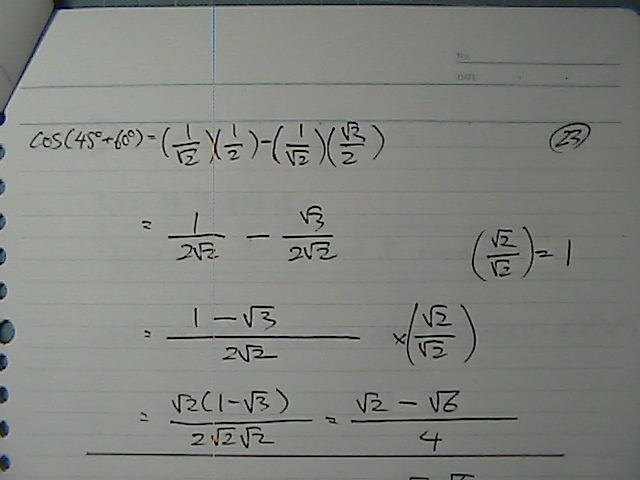 No.
DATE
cos(45°+60°) = (1/√2)(1/2) - (1/√2)(√3/2) (23)
= 1/2√2 - √3/2√2 (√2/√2) = 1
= 1-√3/2√2 ×(√2/√2)
= √2(1-√3)/2√2√2 = √2-√6/4